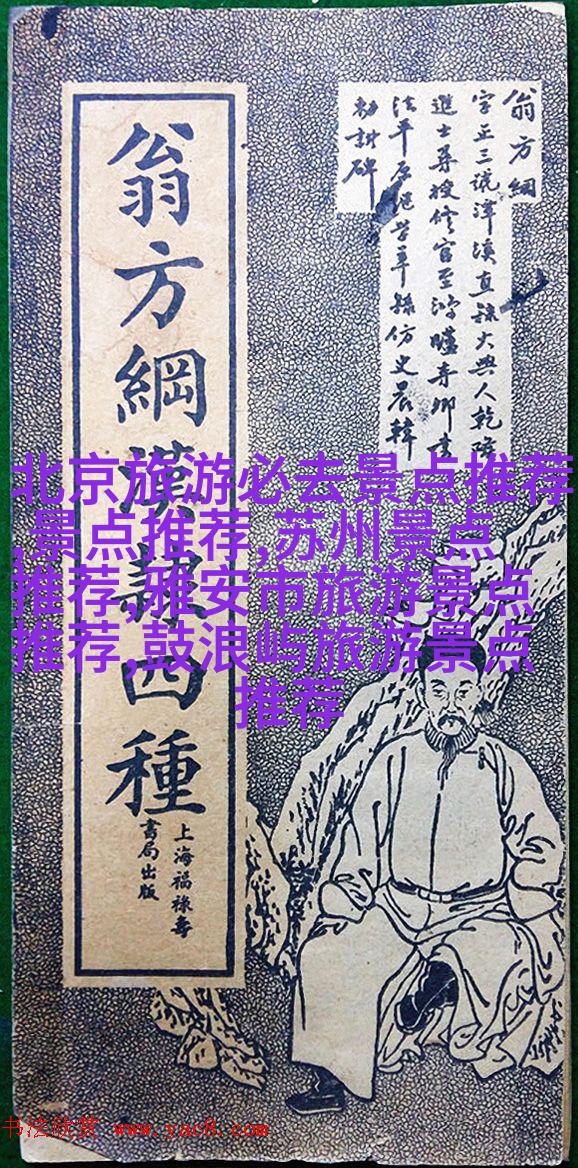 翁方綱
字正三號潭溪直隸大興人乾隆
進士尋授修官至鴻臚寺卿書
法平原
勅封碑
翁方綱漢隸四種
上海福祿壽
書局出版
北京旅游必去景点推荐
,景点推荐,苏州景点
推荐,雅安市旅游景点
推荐,鼓浪屿旅游景点
推荐
书法欣赏 www.yac8.com